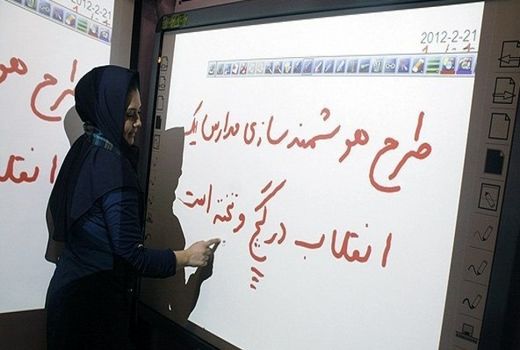 2012-2-21
طرح هوشمندسازی مدارس یک
انقلاب در گچ و تخته است
طرح هو
انقلاب